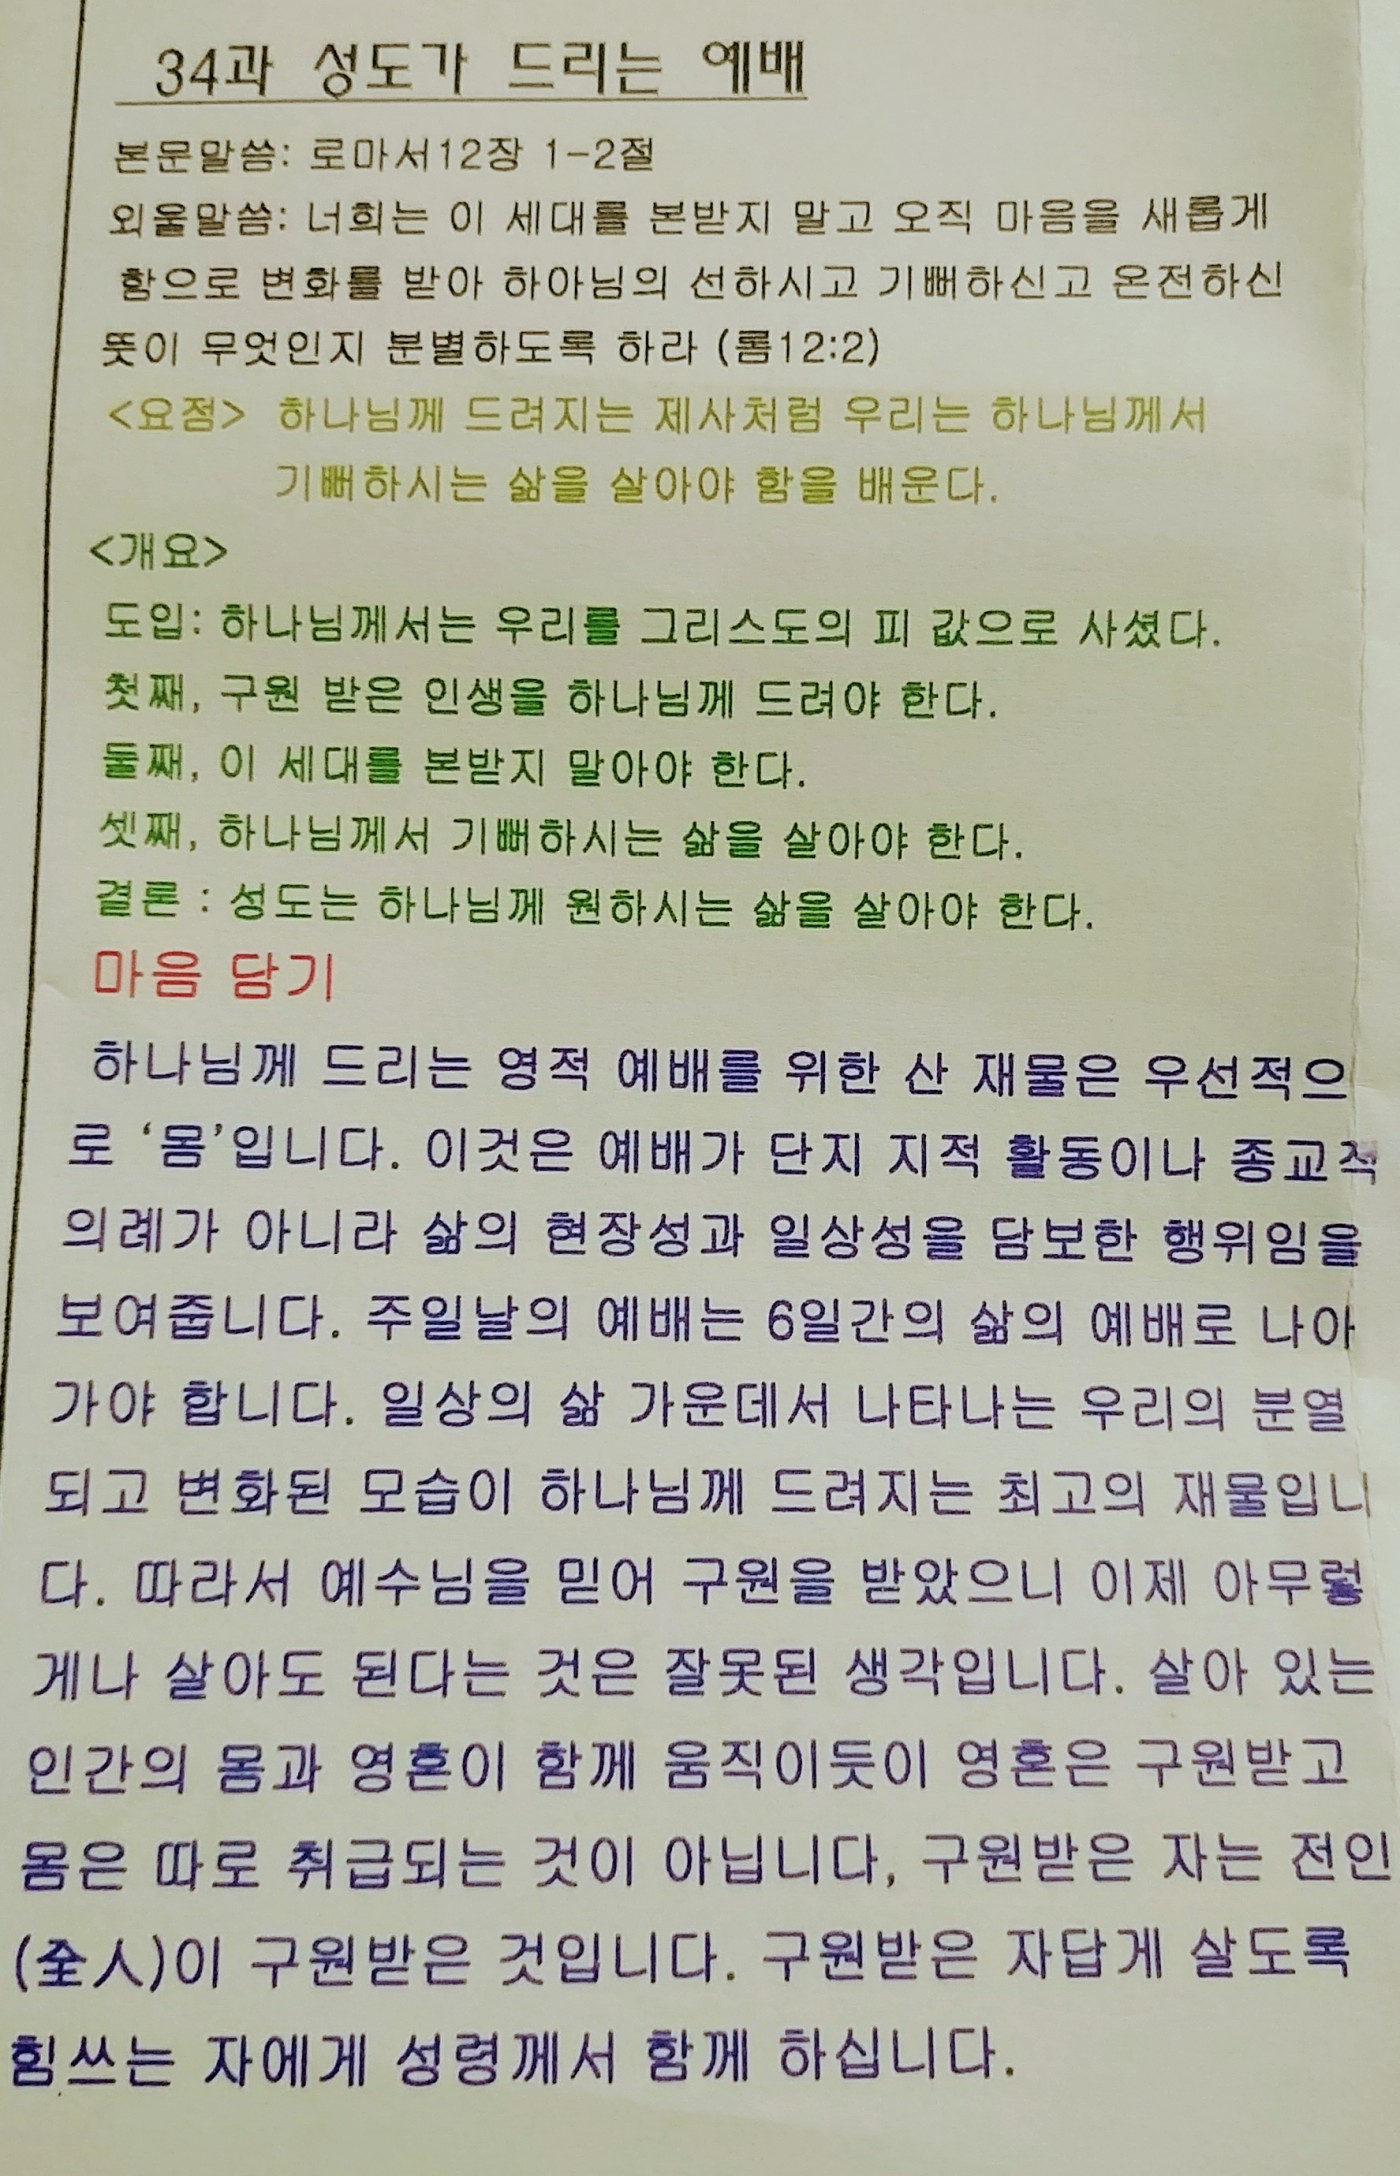 34과 성도가 드리는 예배
본문말씀: 로마서12장 1-2절
외울말씀: 너희는 이 세대를 본받지 말고 오직 마음을 새롭게
함으로 변화를 받아 하아님의 선하시고 기뻐하신고 온전하신
뜻이 무엇인지 분별하도록 하라 (롬12:2)
<요점> 하나님께 드려지는 제사처럼 우리는 하나님께서
기뻐하시는 삶을 살아야 함을 배운다.
<개요>
도입: 하나님께서는 우리를 그리스도의 피 값으로 사셨다.
첫째, 구원 받은 인생을 하나님께 드려야 한다.
둘째, 이 세대를 본받지 말아야 한다.
셋째, 하나님께서 기뻐하시는 삶을 살아야 한다.
결론 : 성도는 하나님께 원하시는 삶을 살아야 한다.
마음 담기
하나님께 드리는 영적 예배를 위한 산 재물은 우선적으
로 ‘몸’입니다. 이것은 예배가 단지 지적 활동이나 종교적
의례가 아니라 삶의 현장성과 일상성을 담보한 행위임을
보여줍니다. 주일날의 예배는 6일간의 삶의 예배로 나아
가야 합니다. 일상의 삶 가운데서 나타나는 우리의 분열
되고 변화된 모습이 하나님께 드려지는 최고의 재물입니
다. 따라서 예수님을 믿어 구원을 받았으니 이제 아무렇
게나 살아도 된다는 것은 잘못된 생각입니다. 살아 있는
인간의 몸과 영혼이 함께 움직이듯이 영혼은 구원받고
몸은 따로 취급되는 것이 아닙니다, 구원받은 자는 전인
(全人)이 구원받은 것입니다. 구원받은 자답게 살도록
힘쓰는 자에게 성령께서 함께 하십니다.